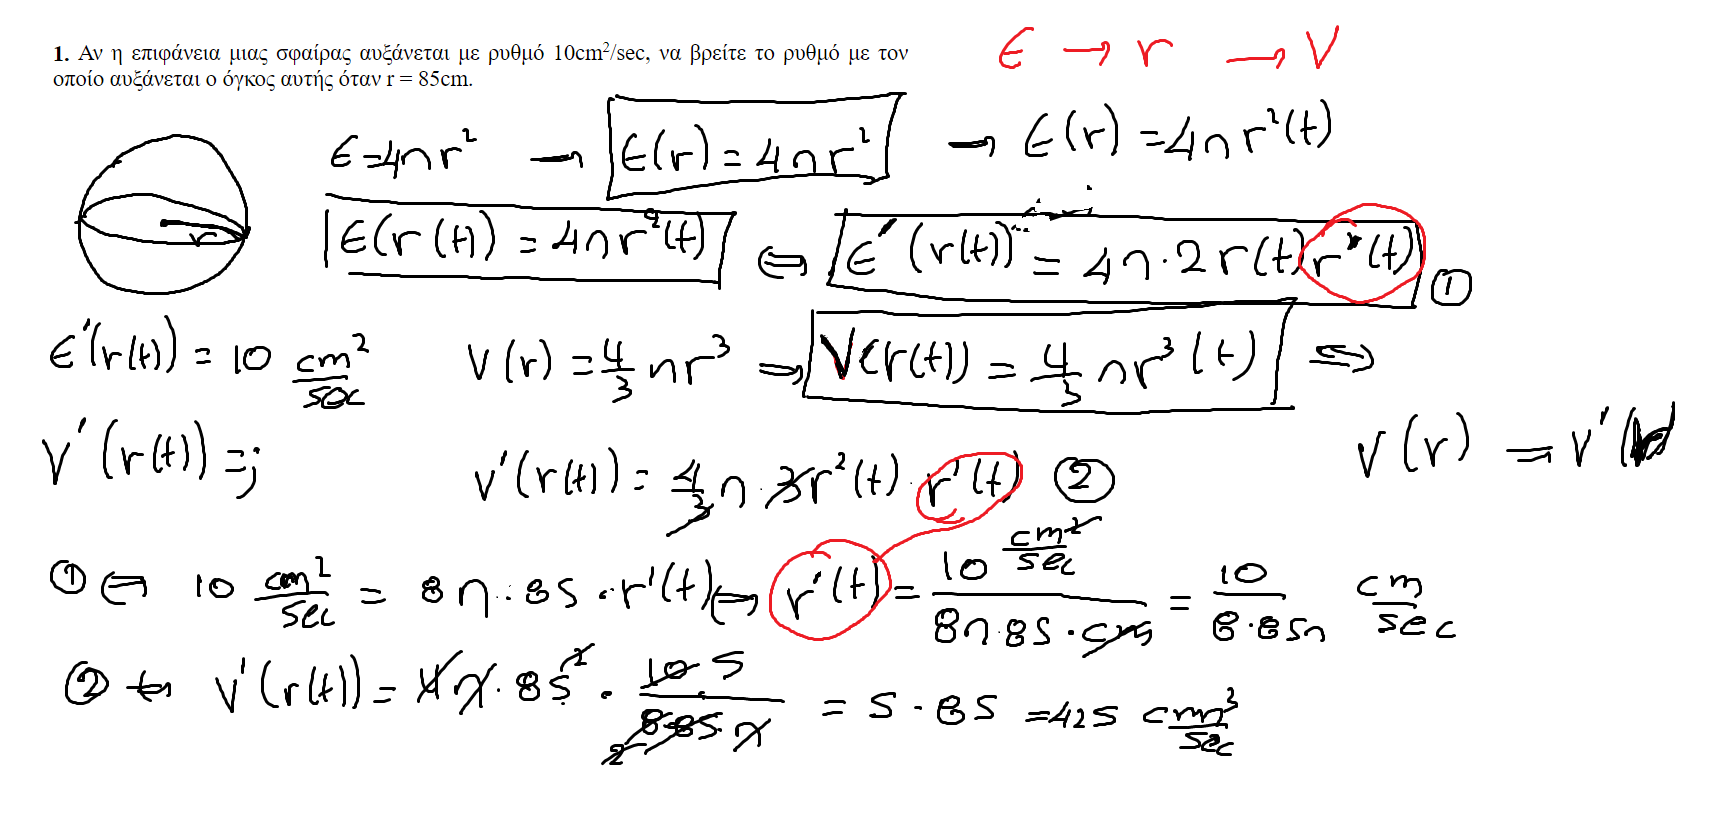 1. Αν η επιφάνεια μιας σφαίρας αυξάνεται με ρυθμό 10cm²/sec, να βρείτε το ρυθμό με τον
οποίο αυξάνεται ο όγκος αυτής όταν r = 85cm.
E → r → V
E=4πr² → E(r) = 4πr² → E(r) = 4πr²(t)
r
E(r(t)) = 4πr²(t) ⇔ E'(r(t)) = 4π·2r(t) r'(t) ①
E'(r(t)) = 10 cm²/sec V(r) = 4/3 πr³ → V(r(t)) = 4/3 πr³(t) ⇔
V'(r(t)) = ; V'(r(t)) = 4/3 π·3r²(t)·r'(t) ② V(r) = V'(
① ⇔ 10 cm²/sec = 8π·85·r'(t) ⇔ r'(t) = 10 cm²/sec / 8π·85·cm = 10 / 8·85π cm/sec
② ⇔ V'(r(t)) = 4π·85² · 10 5 / 8·85·π 2 = 5·85 = 425 cm³/sec